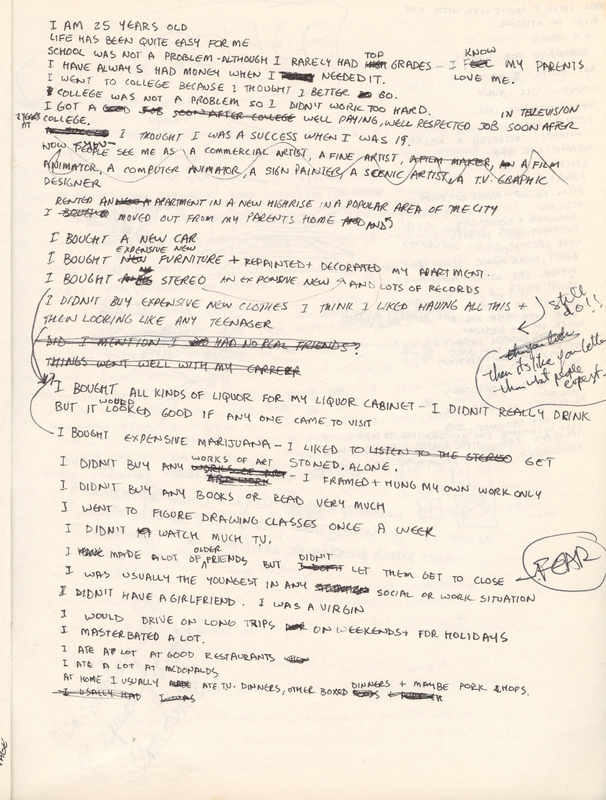 I AM 25 YEARS OLD
LIFE HAS BEEN QUITE EASY FOR ME
SCHOOL WAS NOT A PROBLEM - ALTHOUGH I RARELY HAD TOP GRADES - I KNOW MY PARENTS
I HAVE ALWAYS HAD MONEY WHEN I NEEDED IT. LOVE ME.
I WENT TO COLLEGE BECAUSE I THOUGHT I BETTER GO.
COLLEGE WAS NOT A PROBLEM SO I DIDN'T WORK TOO HARD.
I GOT A GOOD JOB SOON AFTER COLLEGE WELL PAYING, WELL RESPECTED JOB IN TELEVISION SOON AFTER
COLLEGE.
2 YEARS
AT
A SUCCESS I THOUGHT I WAS A SUCCESS WHEN I WAS 19.
NOW PEOPLE SEE ME AS A COMMERCIAL ARTIST, A FINE ARTIST, A FILM MAKER, AN A FILM
ANIMATOR, A COMPUTER ANIMATOR, A SIGN PAINTER, A SCENIC ARTIST, A T.V. GRAPHIC
DESIGNER
RENTED AN APARTMENT IN A NEW HIGHRISE IN A POPULAR AREA OF THE CITY
I MOVED OUT FROM MY PARENTS HOME AND AND
I BOUGHT A NEW CAR
I BOUGHT NEW EXPENSIVE NEW FURNITURE + REPAINTED + DECORATED MY APARTMENT.
I BOUGHT STEREO AN EXPENSIVE NEW AND LOTS OF RECORDS
I DIDN'T BUY EXPENSIVE NEW CLOTHES I THINK I LIKED HAVING ALL THIS +
THEN LOOKING LIKE ANY TEENAGER
still
do!!
DID I MENTION I HAD NO REAL FRIENDS?
THINGS WENT WELL WITH MY CAREER
then its like you better
than what people
expect.
I BOUGHT ALL KINDS OF LIQUOR FOR MY LIQUOR CABINET - I DIDN'T REALLY DRINK
BUT IT WOULD LOOKED GOOD IF ANY ONE CAME TO VISIT
I BOUGHT EXPENSIVE MARIJUANA - I LIKED TO LISTEN TO THE STEREO GET
STONED. ALONE.
I DIDN'T BUY ANY WORKS OF ART WORKS OF ART ART WORK - I FRAMED + HUNG MY OWN WORK ONLY
I DIDN'T BUY ANY BOOKS OR READ VERY MUCH
I WENT TO FIGURE DRAWING CLASSES ONCE A WEEK
I DIDN'T WATCH MUCH T.V.
I HAVE MADE A LOT OF OLDER FRIENDS BUT I DIDN'T LET THEM GET TO CLOSE - FEAR
I WAS USUALLY THE YOUNGEST IN ANY SITUATION SOCIAL OR WORK SITUATION
I DIDN'T HAVE A GIRLFRIEND. I WAS A VIRGIN
I WOULD DRIVE ON LONG TRIPS ON WEEKENDS + FOR HOLIDAYS
I MASTERBATED A LOT.
I ATE A LOT AT GOOD RESTAURANTS
I ATE A LOT AT McDONALDS
AT HOME I USUALLY ATE T.V. DINNERS, OTHER BOXED DINNERS + MAYBE PORK CHOPS.
I USALLY HAD I WAS
PAGE